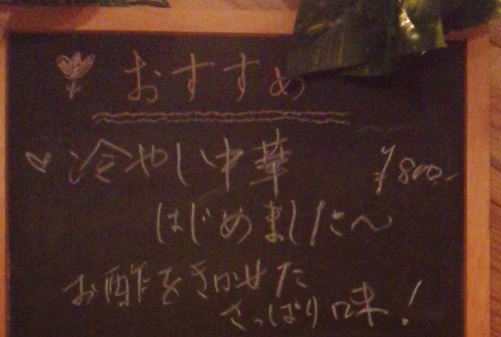 おすすめ
冷やし中華 ¥800.-
はじめました〜
お酢をきかせた
さっぱり味!